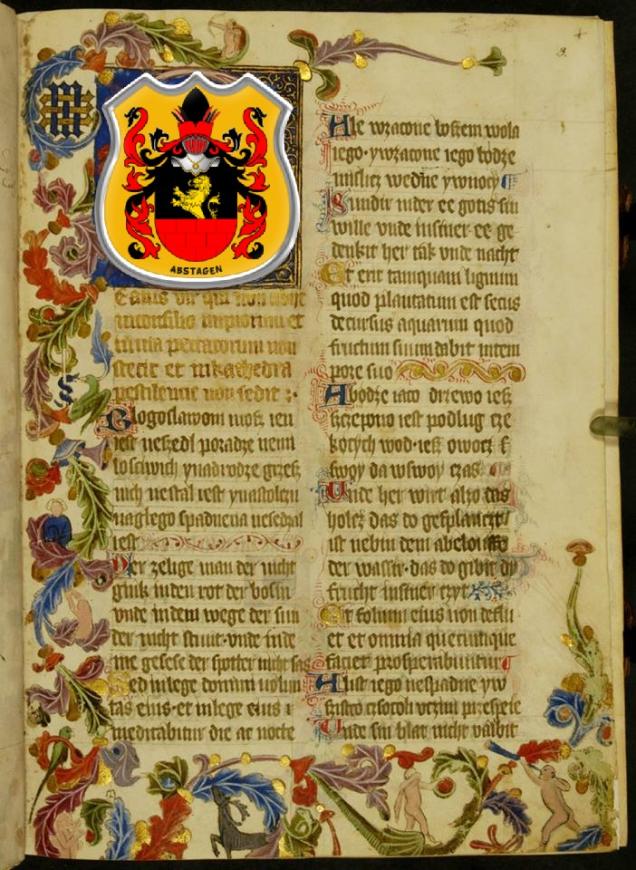 ABSTAGEN
eatus vir qui non abijt
in consilio impiorum et
in via peccatorum non
stetit et in kathedra
pestilencie non sedit :·
Blogoslawoni mosz ien
iest neszedl poradze nemi
losciwich ynadrodze grzesz
nich nestal iest ynastolczu
naglego spadnena nesedzal
iest
Der zelige man der nicht
gink inden rot der bosin
vnde indem wege der sun
der nicht stunt· vnde inde
me gesese der spotler nicht sas
Sed inlege domini uolun
tas eius· et inlege eius
meditabitur die ac nocte
Ale wzacone boszem wola
iego· ywzacone iego bodze
mislicz wedne ywnocy
Sundir inder ee gotis sin
wille vnde insiner ee ge
denkit her tak vnde nacht
Et erit tamquam lignum
quod plantatum est secus
decursus aquarum quod
fructum suum dabit intem
pore suo
Abodze iaco drzewo iesz
szczepono iest podlug cze
kocych wod· iesz owocz s
swoy da wswoy czas
Unde her wirt alzo das
holcz das do gesplanczt
ist nebin dem abeloufte
der wassir· das do gibit dy
frucht insiner czyt
Et folium eius non deflu
et et omnia quecunque
faciet prosperabuntur
A list iego nespadne yw
szistko czsocoli vczini przespeie
Unde sin blat nicht valbit